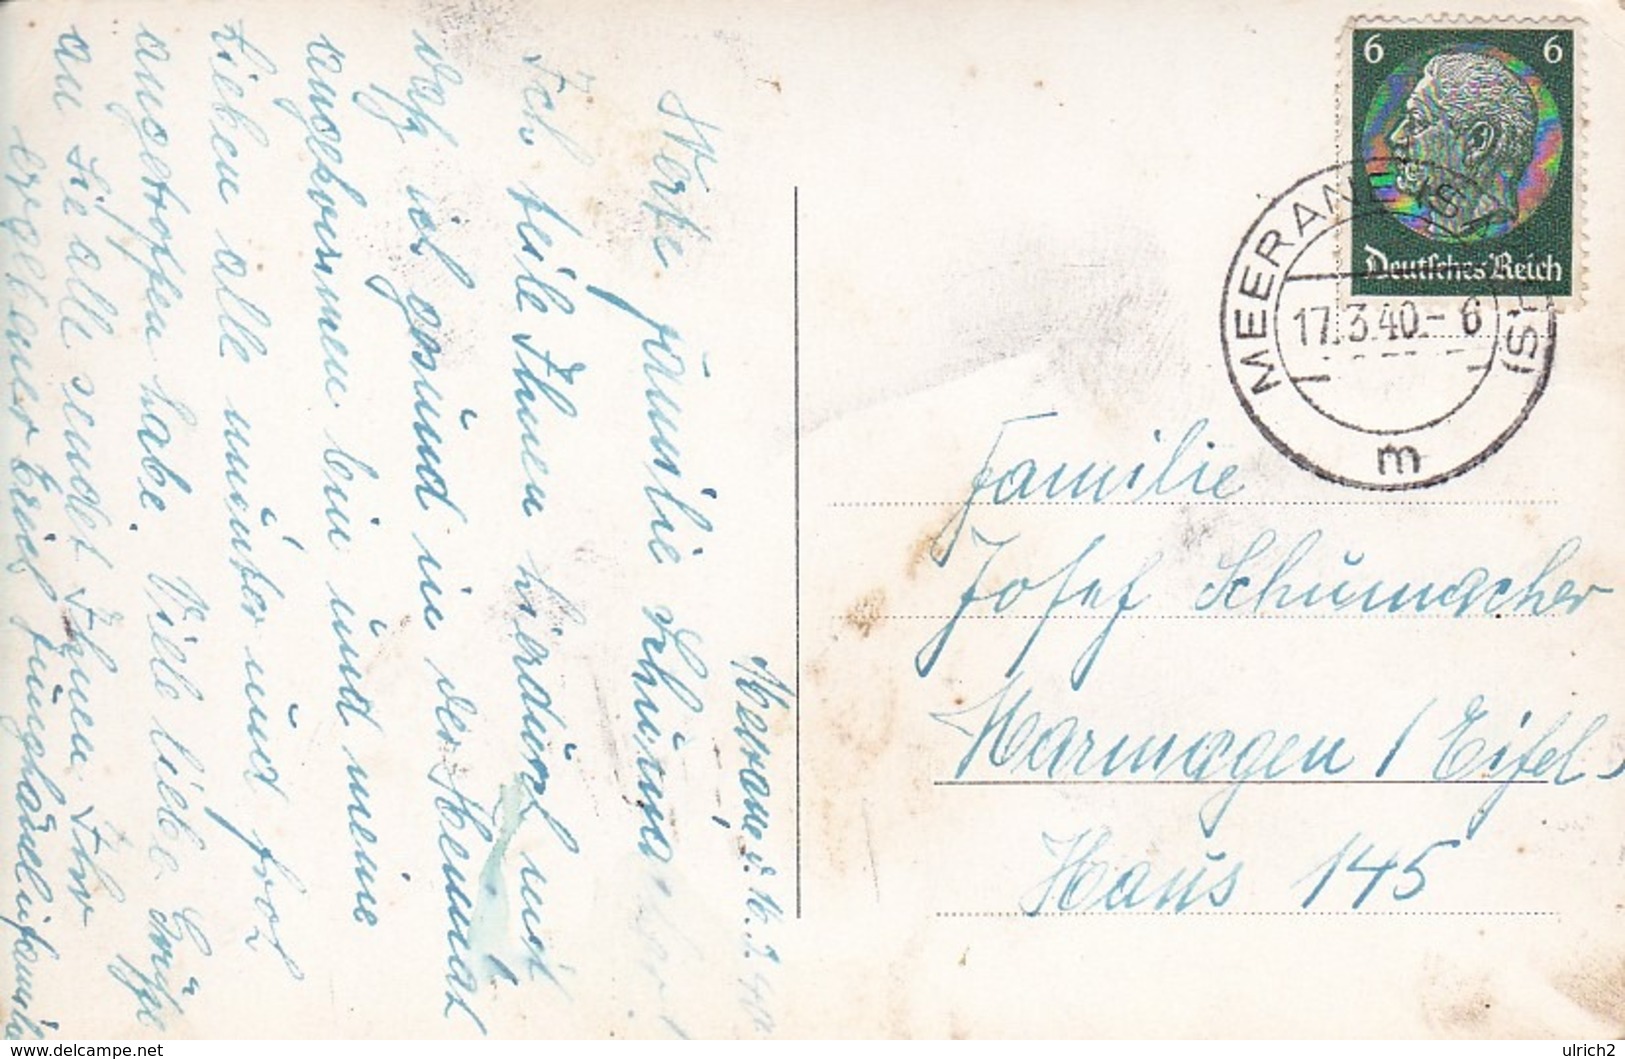 Meerane d. 16.3.40.
Werte Familie Schumacher!
Ich teile Ihnen hierdurch mit
daß ich gesund in der Heimat
angekommen bin und meine
Lieben alle munter und froh
angetroffen habe. Viele liebe Grüße
an Sie all sendet Ihnen Ihr
ergebener Erich Junghans
6 6
Deutsches Reich
MEERANE (SACHS)
17.3.40.-6
m
Familie
Josef Schumacher
Marmagen / Eifel
Haus 145
www.delcampe.net
ulrich2